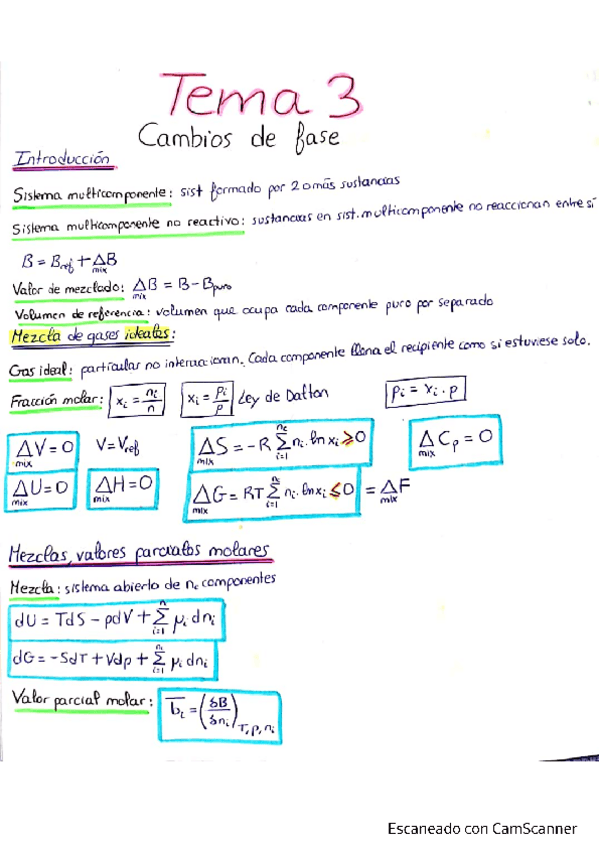 Tema 3
Cambios de fase
Introducción
Sistema multicomponente: sist formado por 2 o más sustancias
Sistema multicomponente no reactivo: sustancias en sist. multicomponente no reaccionan entre sí
B = B_ref + Δ_mix B
Valor de mezclado: Δ_mix B = B - B_puro
Volumen de referencia: volumen que ocupa cada componente puro por separado
Mezcla de gases ideales:
Gas ideal: particular no interaccionan. Cada componente llena el recipiente como si estuviese solo.
Fracción molar: x_i = n_i/n x_i = p_i/p Ley de Dalton p_i = x_i · p
Δ_mix V = 0 V = V_ref Δ_mix S = -R Σ_{i=1}^{n_c} n_i · ln x_i ≥ 0 Δ_mix C_p = 0
Δ_mix U = 0 Δ_mix H = 0 Δ_mix G = RT Σ_{i=1}^{n_c} n_i · ln x_i ≤ 0 = Δ_mix F
Mezclas, valores parciales molares
Mezcla: sistema abierto de n_c componentes
dU = TdS - pdV + Σ_{i=1}^{n} μ_i dn_i
dG = -SdT + Vdp + Σ_{i=1}^{n_c} μ_i dn_i
Valor parcial molar: b̄_i = (δB/δn_i)_{T,p,n_i}
Escaneado con CamScanner